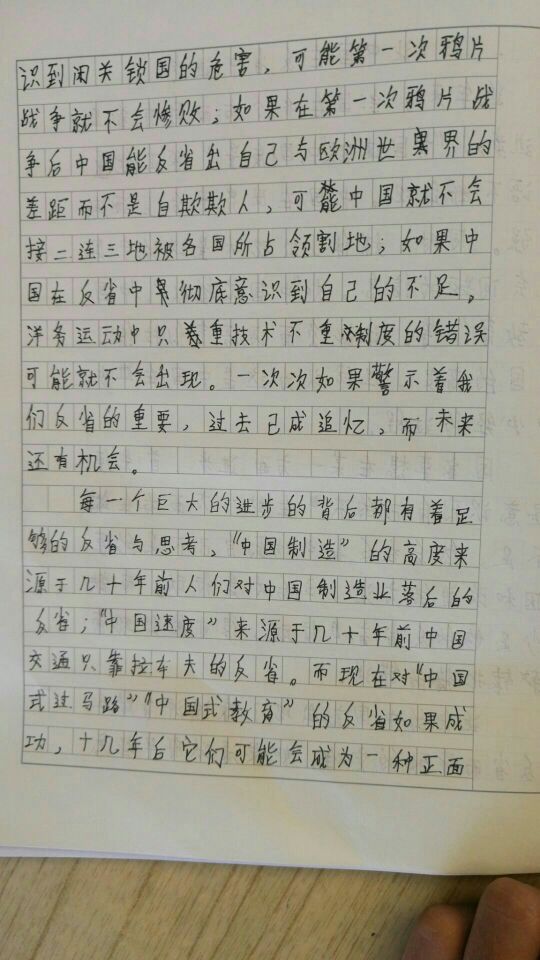 识到闭关锁国的危害，可能第一次鸦片
战争就不会惨败；如果在第一次鸦片战
争后中国能反省出自己与欧洲世界的
差距而不是自欺欺人，可能中国就不会
接二连三地被各国所占领割地；如果中
国在反省中彻底意识到自己的不足。
洋务运动中只重技术不重制度的错误
可能就不会出现。一次次如果警示着我
们反省的重要，过去已成追忆，而未来
还有机会。
每一个巨大的进步的背后都有着足
够的反省与思考，“中国制造”的高度来
源于几十年前人们对中国制造业落后的
反省；“中国速度”来源于几十年前中国
交通只靠拉车夫的反省。而现在对“中国
式过马路”“中国式教育”的反省如果成
功，十几年后它们可能会成为一种正面